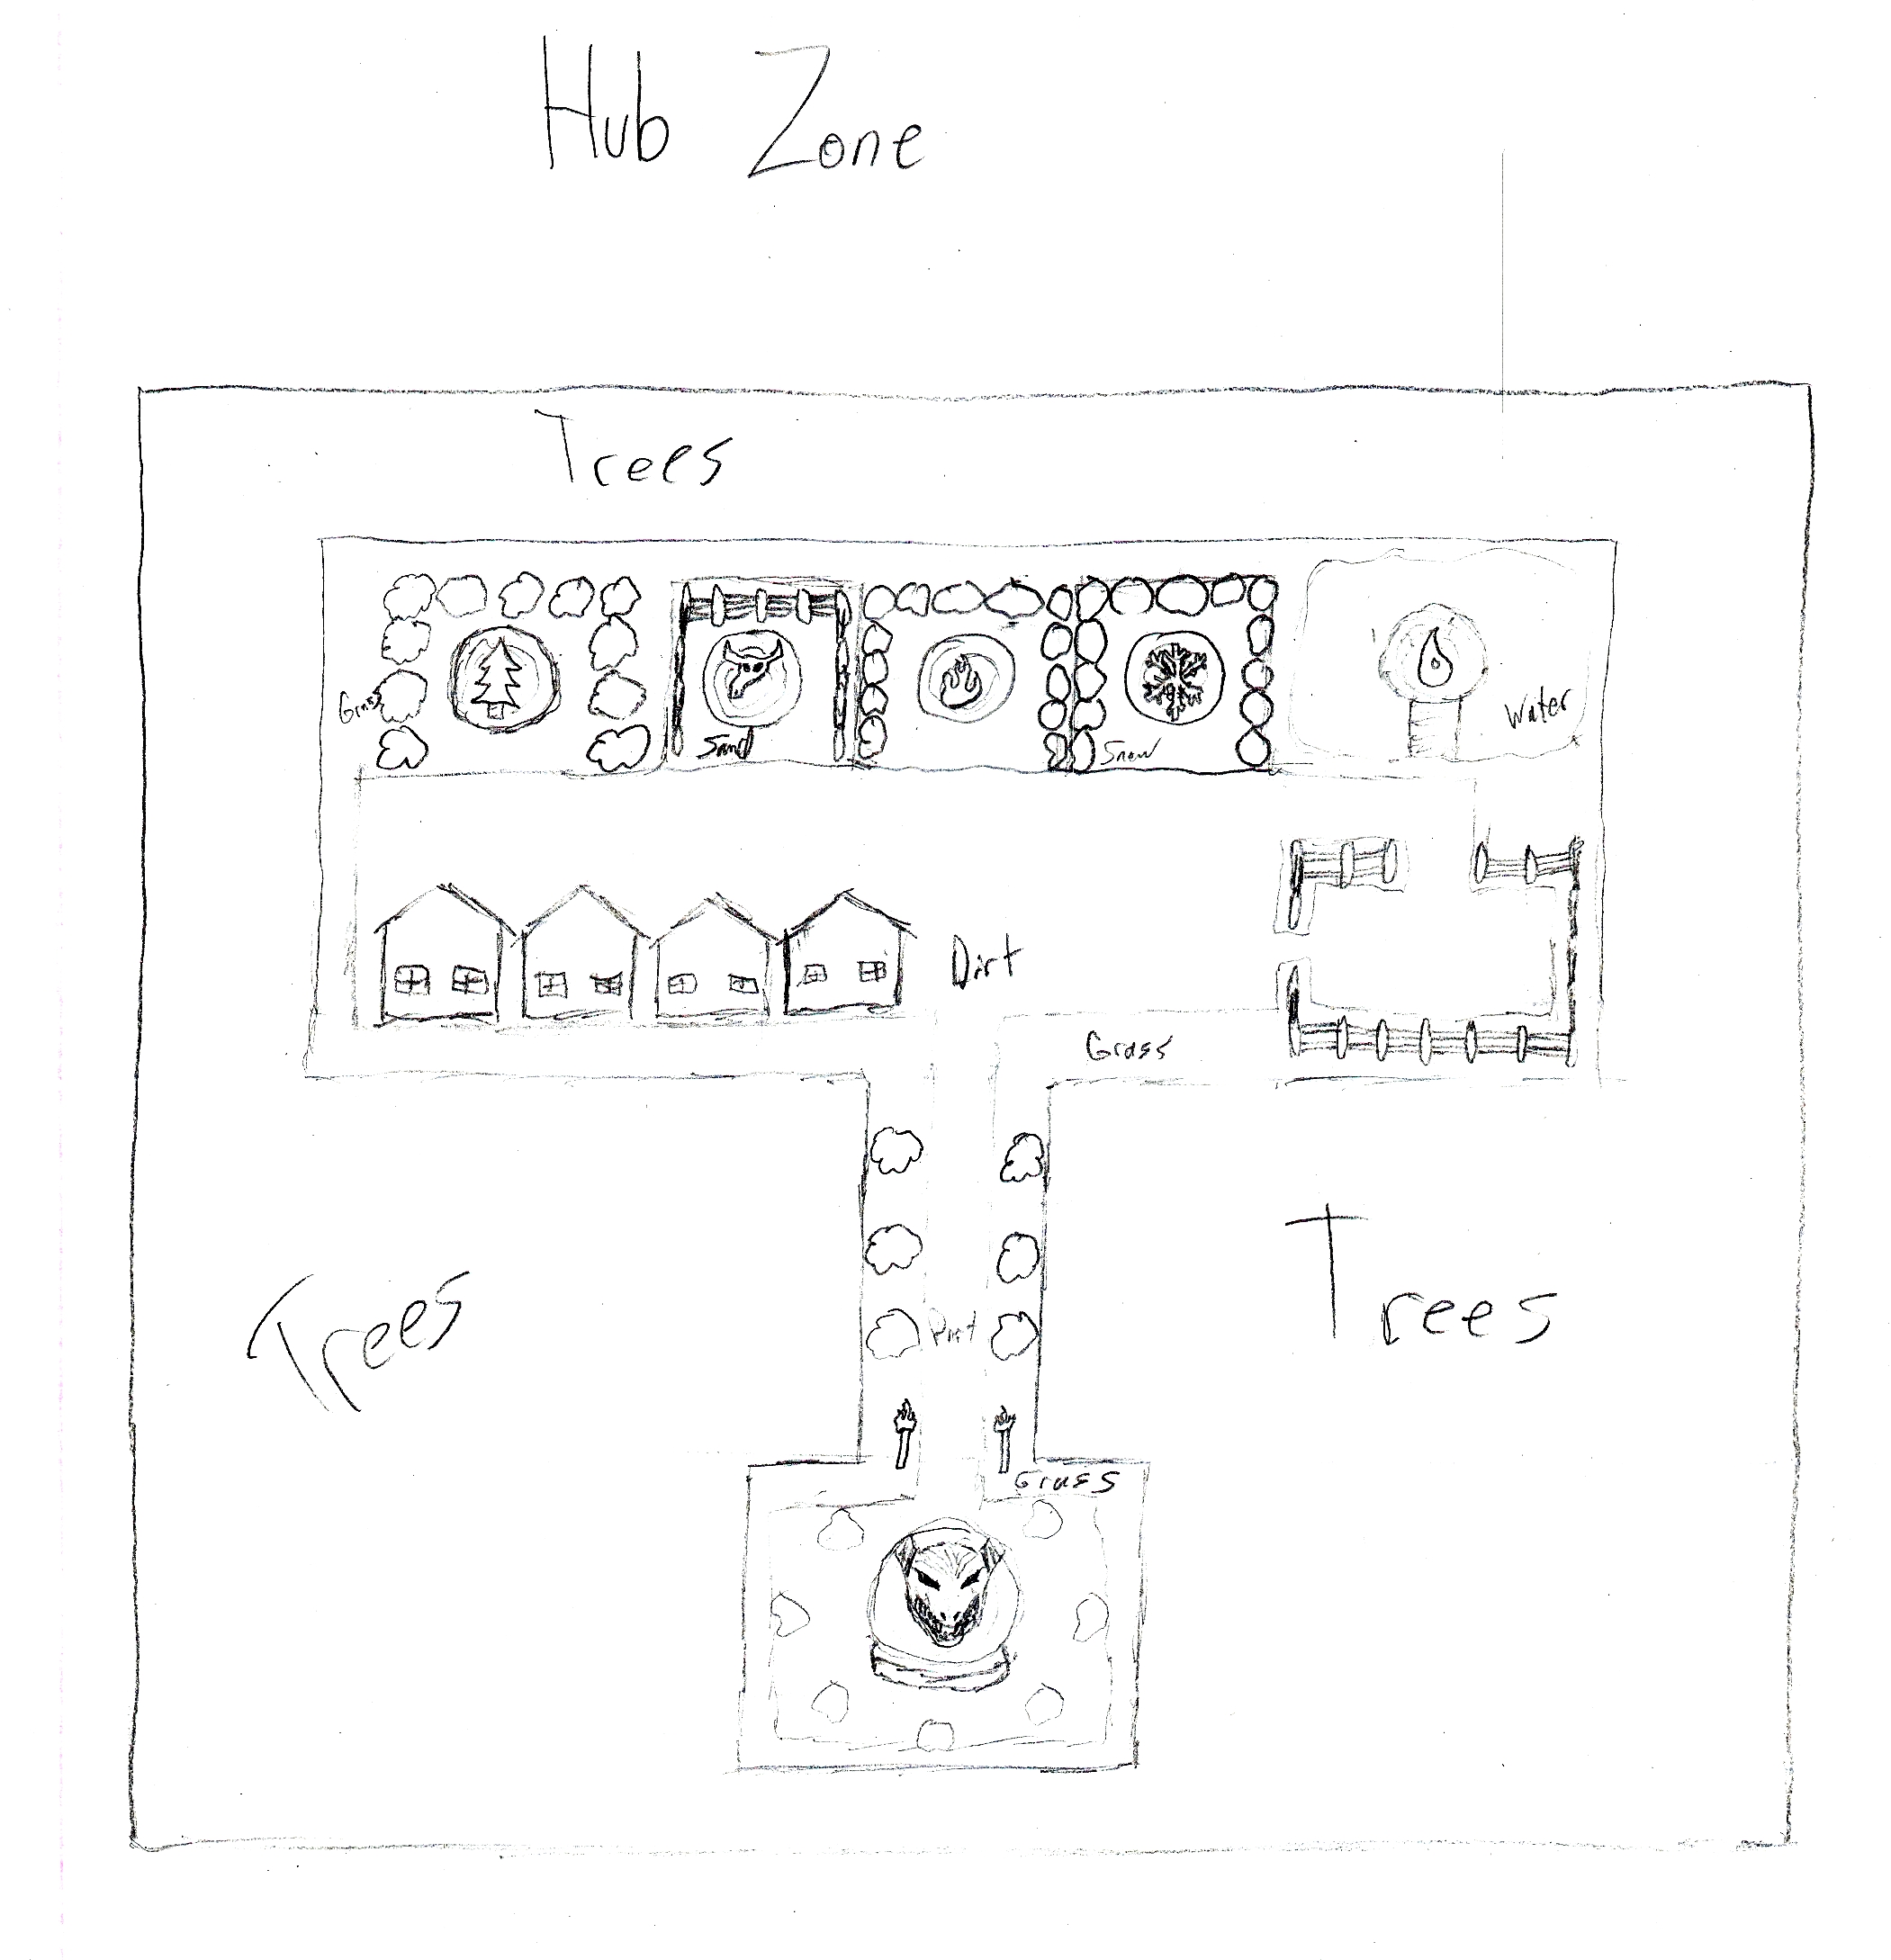 Hub Zone
Trees
Grass
Sand
Snow
Water
Dirt
Grass
Trees
Trees
Dirt
Grass